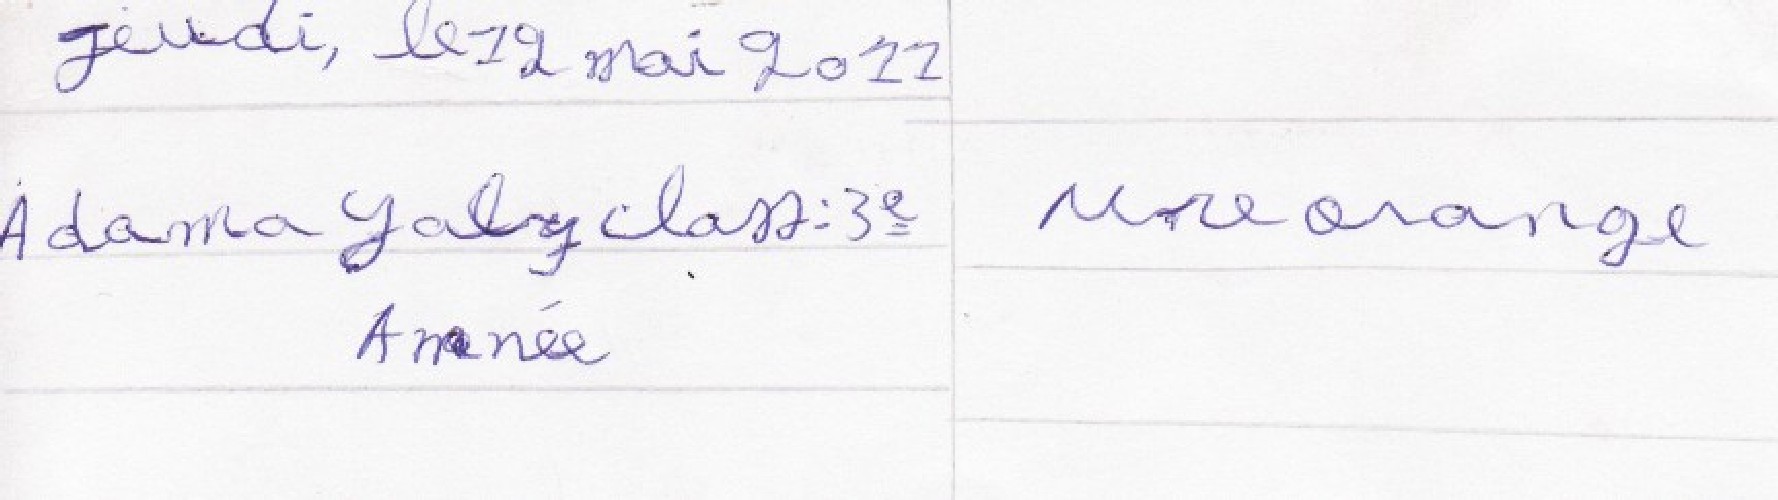 jeudi, le 12 mai 2011
Adama Yalcy class: 3e
Année
Une orange